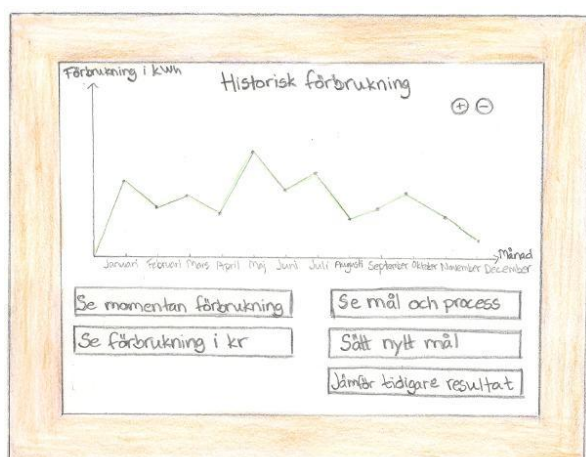 Förbrukning i kWh
Historisk förbrukning
+ −
Månad
Januari Februari Mars April Maj Juni Juli Augusti September Oktober November December
Se momentan förbrukning
Se mål och process
Se förbrukning i kr
Sätt nytt mål
Jämför tidigare resultat